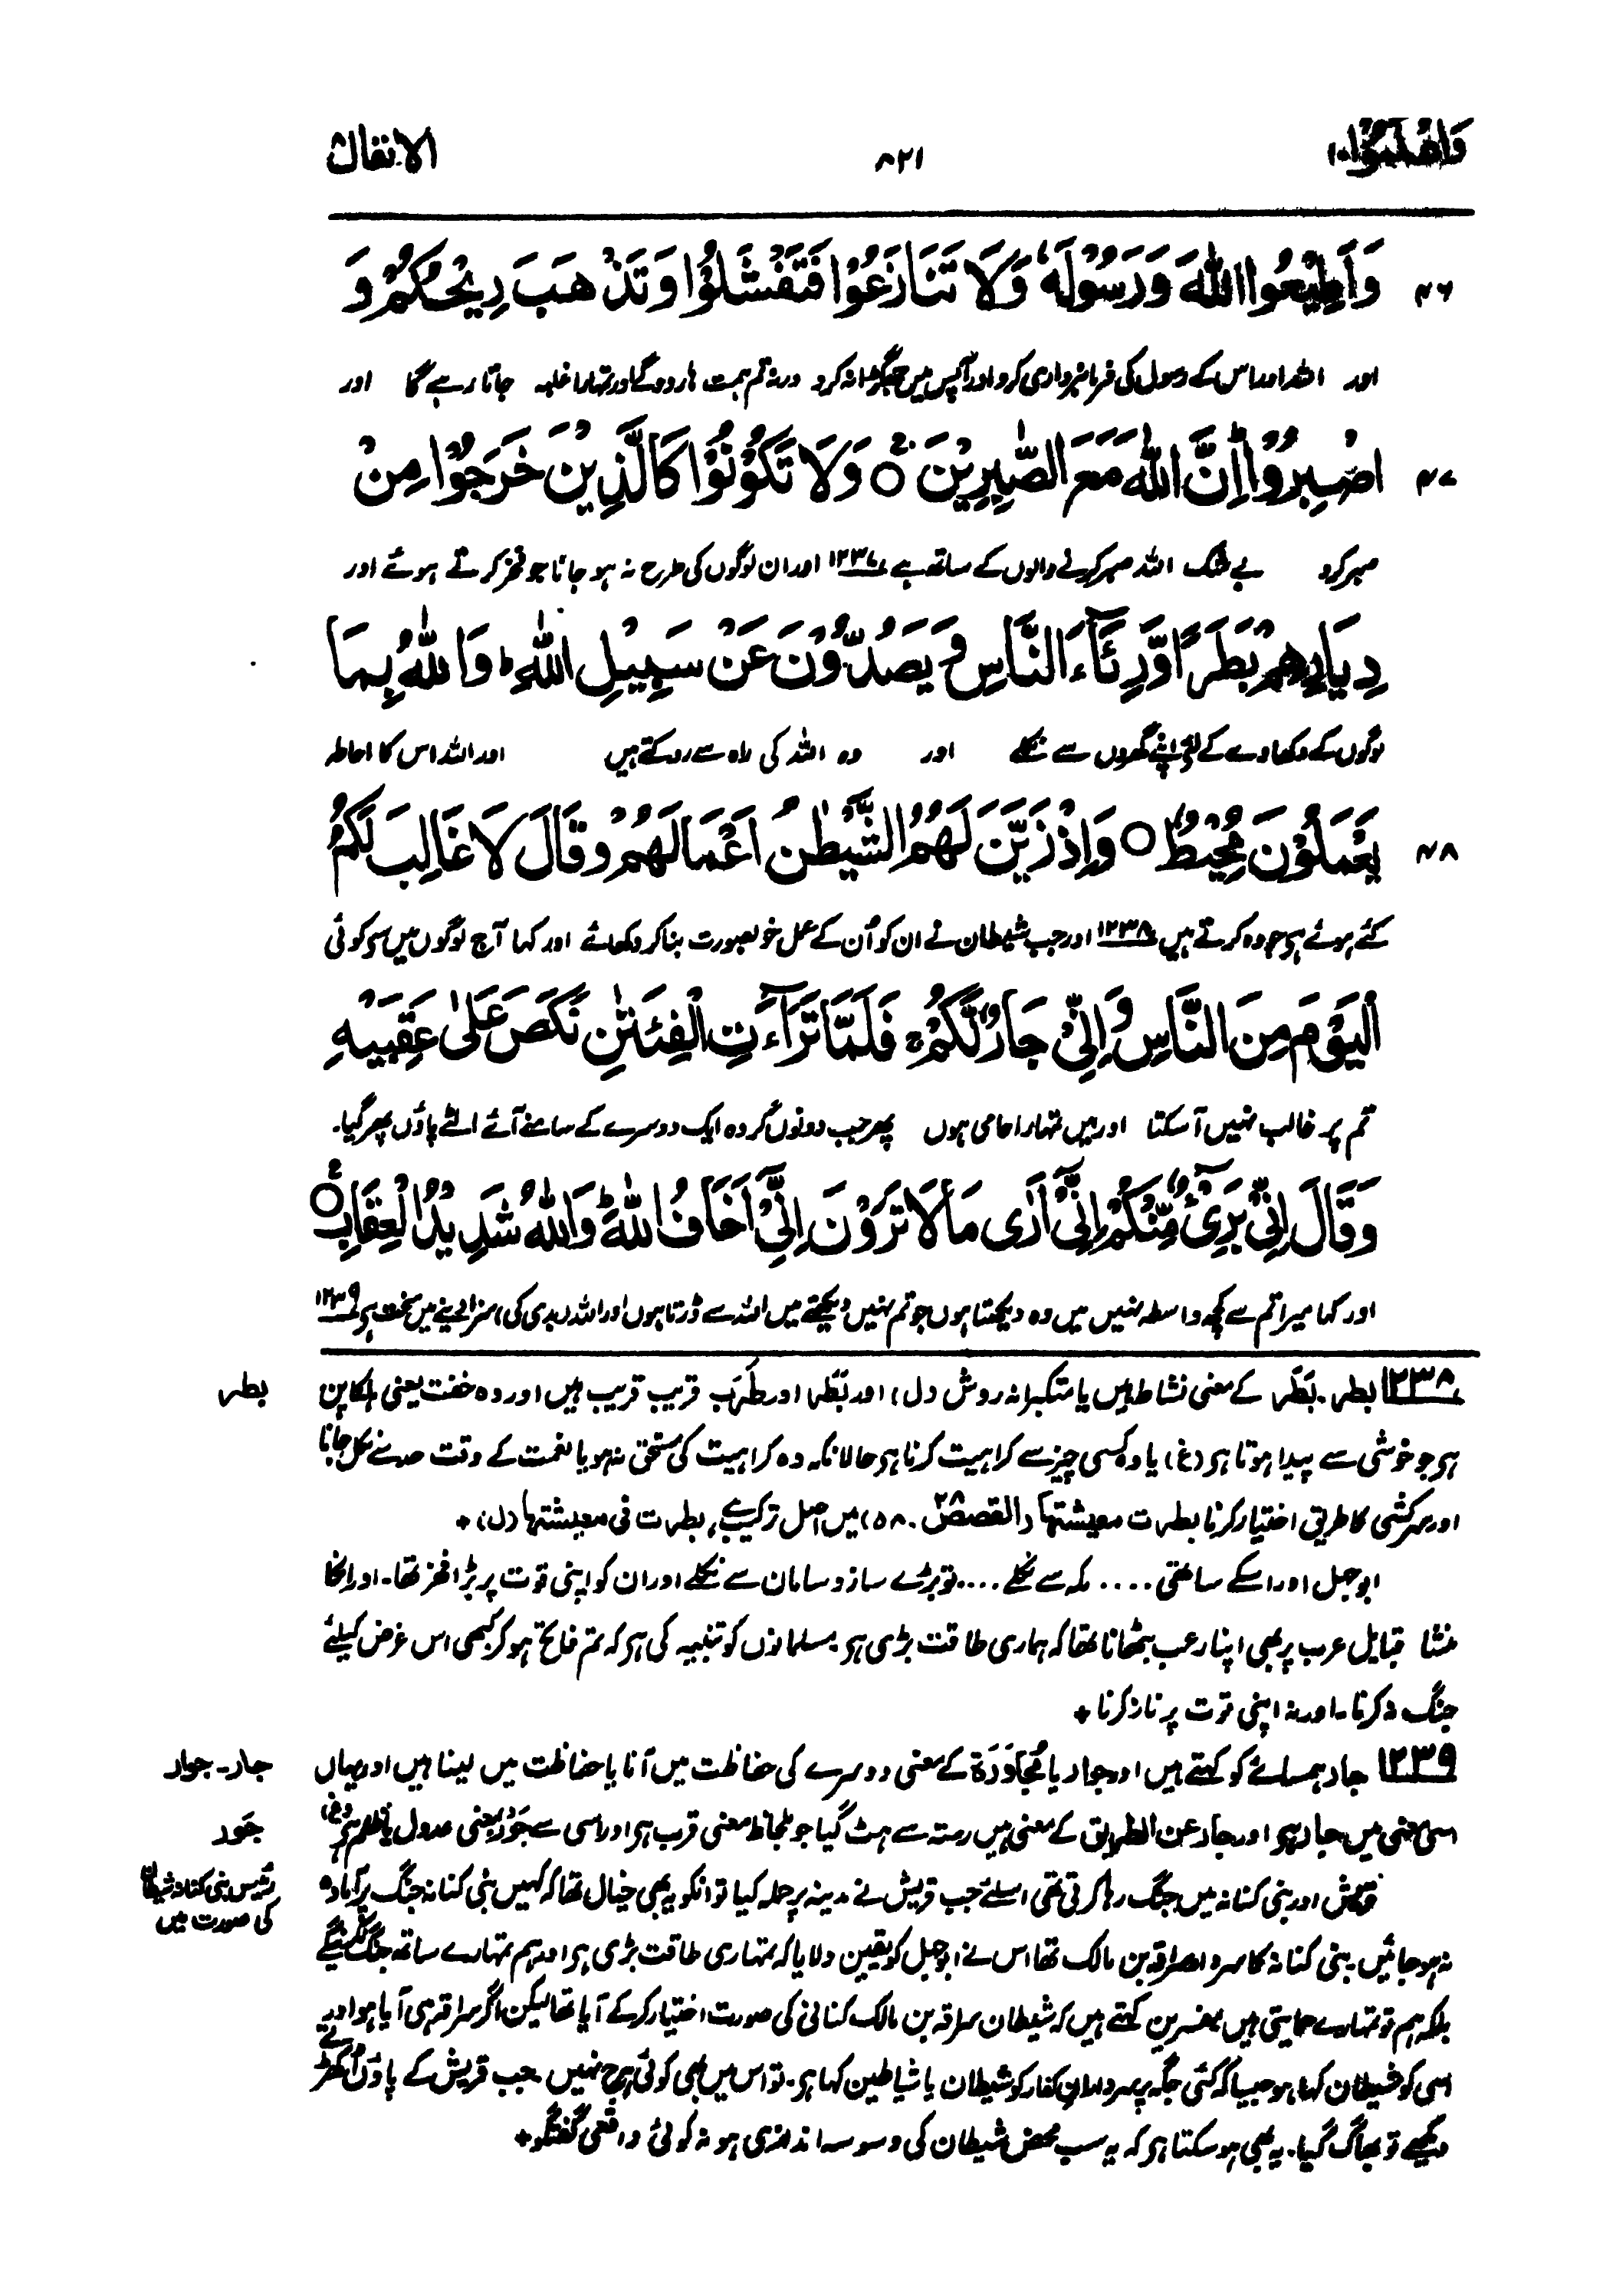 واعلموا ۱۰ ۸۲۱ الانفال
۴۶ وَاَطِيْعُوا اللّٰهَ وَرَسُوْلَهٗ وَلَا تَنَازَعُوْا فَتَفْشَلُوْا وَتَذْهَبَ رِيْحُكُمْ وَ
اور اللہ اور اس کے رسول کی فرمانبرداری کرو اور آپس میں جھگڑا نہ کرو ورنہ تم ہمت ہار دو گے اور تمہارا غلبہ جاتا رہے گا اور
۴۷ اصْبِرُوْا ؕ اِنَّ اللّٰهَ مَعَ الصّٰبِرِيْنَ ۝ وَلَا تَكُوْنُوْا كَالَّذِيْنَ خَرَجُوْا مِنْ
صبر کرو بے شک اللہ صبر کرنے والوں کے ساتھ ہے ۱۲۳۷ اور ان لوگوں کی طرح نہ ہو جانا جو فخر کرتے ہوئے اور
دِيَارِهِمْ بَطَرًا وَّرِئَآءَ النَّاسِ وَيَصُدُّوْنَ عَنْ سَبِيْلِ اللّٰهِ ؕ وَاللّٰهُ بِمَا
لوگوں کے دکھاوے کے لئے اپنے گھروں سے نکلے اور وہ اللہ کی راہ سے روکتے ہیں اور اللہ اس کا احاطہ
۴۸ يَعْمَلُوْنَ مُحِيْطٌ ۝ وَاِذْ زَيَّنَ لَهُمُ الشَّيْطٰنُ اَعْمَالَهُمْ وَقَالَ لَا غَالِبَ لَكُمُ
کئے ہوئے ہی جو وہ کرتے ہیں ۱۲۳۸ اور جب شیطان نے ان کو اُن کے عمل خوبصورت بنا کر دکھائے اور کہا آج لوگوں میں سی کوئی
الْيَوْمَ مِنَ النَّاسِ وَاِنِّيْ جَارٌ لَّكُمْ ۚ فَلَمَّا تَرَآءَتِ الْفِئَتٰنِ نَكَصَ عَلٰى عَقِبَيْهِ
تم پر غالب نہیں آسکتا اور میں تمہارا حامی ہوں پھر جب دونوں گروہ ایک دوسرے کے سامنے آئے الٹے پاؤں پھر گیا۔
وَقَالَ اِنِّيْ بَرِيْٓءٌ مِّنْكُمْ اِنِّيْٓ اَرٰى مَا لَا تَرَوْنَ اِنِّيْٓ اَخَافُ اللّٰهَ ؕ وَاللّٰهُ شَدِيْدُ الْعِقَابِ ۝
اور کہا میرا تم سے کچھ واسطہ نہیں میں وہ دیکھتا ہوں جو تم نہیں دیکھتے میں اللہ سے ڈرتا ہوں اور اللہ (بدی کی) سزا دینے میں سخت ہی ۱۲۳۹
۱۲۳۸ بطر۔ بَطَر کے معنی نشاط ہیں یا متکبرانہ روش (ل) اور بَطَر اور طَرَب قریب قریب ہیں اور وہ خفت یعنی ہلکا پن
بطر
ہی جو خوشی سے پیدا ہوتا ہی (غ) یا وہ کسی چیز سے کراہیت کرنا ہی حالانکہ وہ کراہیت کی مستحق نہ ہو یا نعمت کے وقت حد سے نکل جانا
اور سرکشی کا طریق اختیار کرنا بطرت معیشتہا (القصص ۲۸۔ ۵۸) میں اصل ترکیب ہے، بطرت فی معیشتہا (ل) ٭
ابو جہل اور اسکے ساتھی .... مکہ سے نکلے .... تو بڑے ساز و سامان سے نکلے اور ان کو اپنی قوت پر بڑا فخر تھا۔ اور انکا
منشا قبایل عرب پر بھی اپنا رعب بٹھانا تھا کہ ہماری طاقت بڑی ہی۔ مسلمانوں کو تنبیہ کی ہی کہ تم فاتح ہو کر کبھی اس غرض کیلئے
جنگ نہ کرنا۔ اور نہ اپنی قوت پر ناز کرنا ٭
۱۲۳۹ جار ہمسائے کو کہتے ہیں اور جوار یا مُجَاوَرَة کے معنی دوسرے کی حفاظت میں آنا یا حفاظت میں لینا ہیں اور یہاں
جار۔ جوار
اسی معنی میں جار ہی اور جار عن الطریق کے معنی ہیں رستہ سے ہٹ گیا جو بلحاظ معنی قرب ہی اور اسی سے جَوْر بمعنی عدول یا ظلم ہی (غ)
جَور
قریش اور بنی کنانہ میں جنگ رہا کرتی تھی اسلئے جب قریش نے مدینہ پر حملہ کیا تو انکو یہ بھی خیال تھا کہ کہیں بنی کنانہ جنگ پر آمادہ
رئیس بنی کنانہ شیطان
کی صورت میں
نہ ہو جائیں۔ بنی کنانہ کا سردار سراقہ بن مالک تھا اس نے ابو جہل کو یقین دلایا کہ تمہاری طاقت بڑی ہی اور ہم تمہارے ساتھ جنگ نہیں کرینگے
بلکہ ہم تو تمہارے حمایتی ہیں۔ مفسرین کہتے ہیں کہ شیطان سراقہ بن مالک کنانی کی صورت اختیار کر کے آیا تھا لیکن اگر سراقہ ہی آیا ہو اور
اسی کو شیطان کہا ہو جیسا کہ کئی جگہ پر سرداران کفار کو شیطان یا شیاطین کہا ہی۔ تو اس میں بھی کوئی ہرج نہیں۔ جب قریش کے پاؤں اُکھڑتے
دیکھے تو بھاگ گیا۔ یہ بھی ہو سکتا ہی کہ یہ سب محض شیطان کی وسوسہ اندازی ہو نہ کوئی واقعی گفتگو ٭